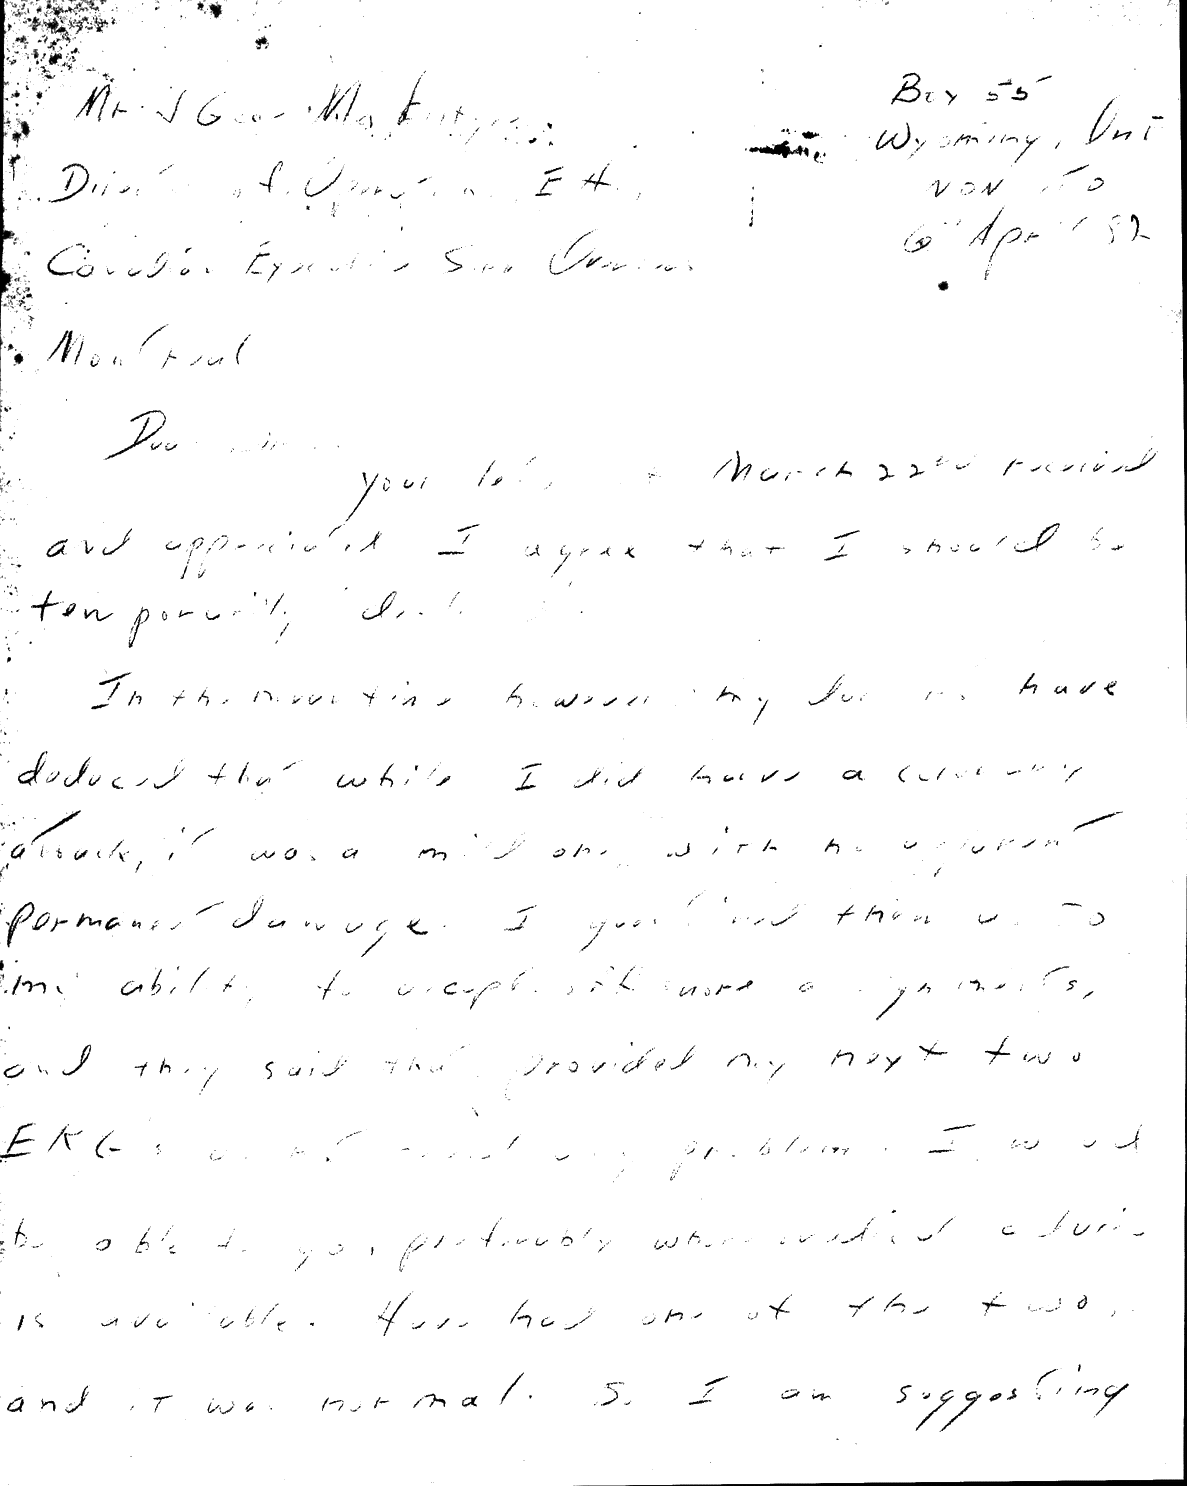 Mr J Geo
Box 55
Wyoming, Ont
NON 1T0
Director of Operations
6 April 82
Canadian Executive Service Overseas
Montreal
Dear
your letter of March 22nd received
and appreciated I agree that I should be
temporarily
In the meantime however my doctors have
deduced that while I did have a coronary
attack, it was a mild one with no apparent
permanent damage. I questioned them as to
my ability to accept more assignments,
and they said that provided my next two
EKG's do not reveal any problems I would
be able to go, preferably where medical advice
is available. Have had one of the two,
and it was normal. So I am suggesting